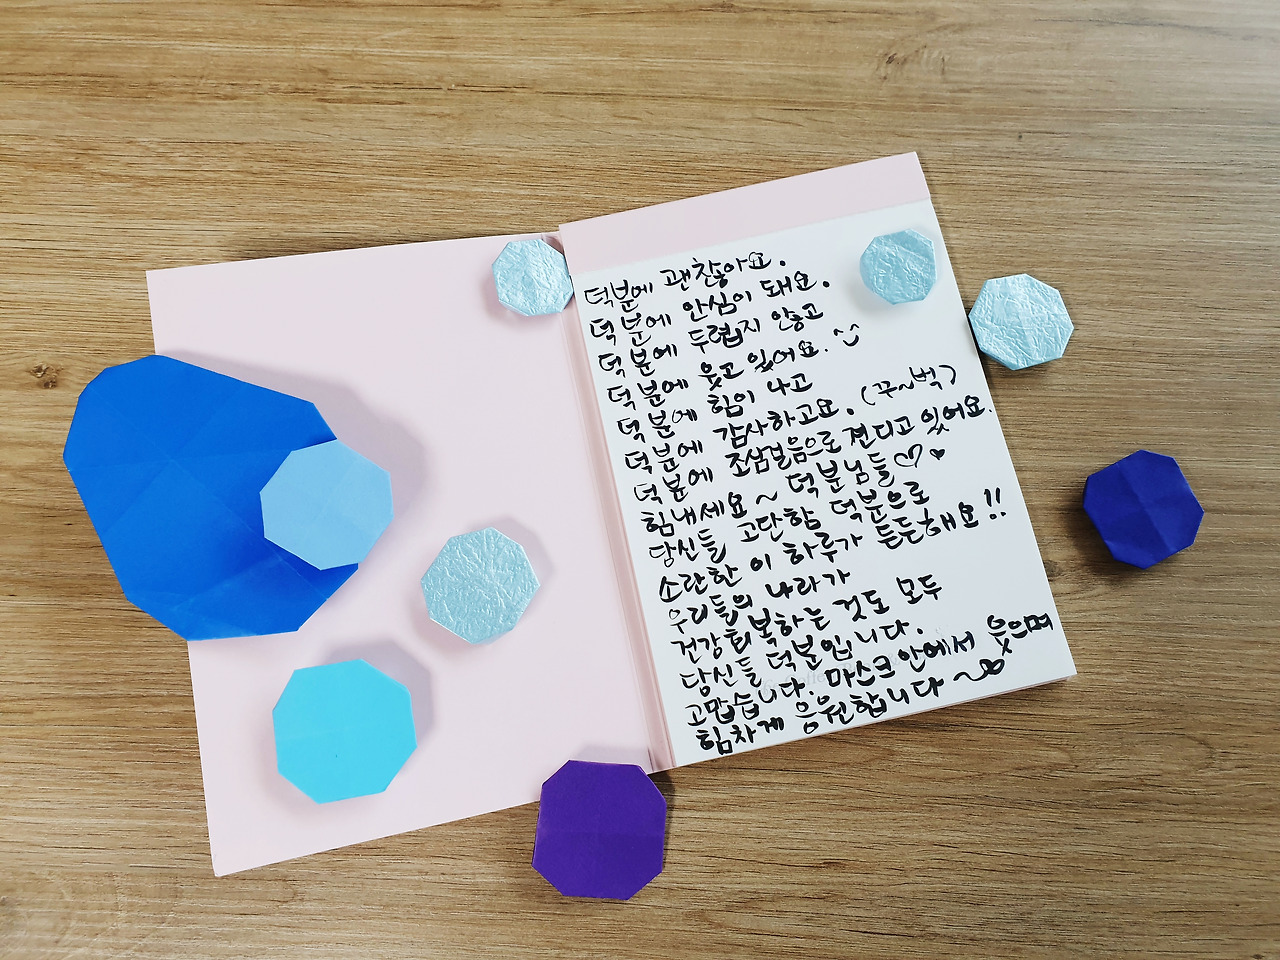 덕분에 괜찮아요.
덕분에 안심이 돼요.
덕분에 두렵지 않고
덕분에 웃고 있어요.
덕분에 힘이 나고
덕분에 감사하고요. (꾸~벅)
덕분에 조심걸음으로 견디고 있어요.
힘내세요~ 덕분님들♡
당신들 고단함 덕분으로
소란한 이 하루가 든든해요!!
우리들의 나라가
건강회복하는 것도 모두
당신들 덕분입니다.
고맙습니다. 마스크 안에서 웃으며
힘차게 응원합니다~